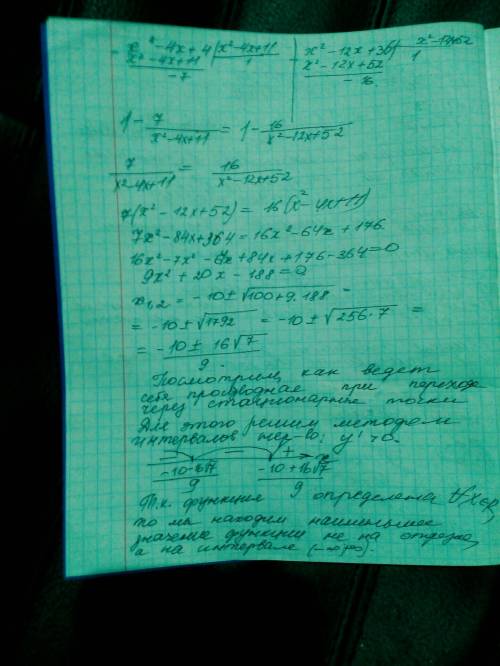 - x² - 4x + 4 | x² - 4x + 11
x² - 4x + 11 1
-7
- x² - 12x + 36 | x² - 12x + 52
x² - 12x + 52 1
- 16.
1 - 7/(x² - 4x + 11) = 1 - 16/(x² - 12x + 52)
7/(x² - 4x + 11) = 16/(x² - 12x + 52)
7(x² - 12x + 52) = 16(x² - 4x + 11)
7x² - 84x + 364 = 16x² - 64x + 176.
16x² - 7x² - 64x + 84x + 176 - 364 = 0
9x² + 20x - 188 = 0
x₁,₂ = -10 ± √(100 + 9·188) =
= -10 ± √1792 = -10 ± √(256·7) =
= (-10 ± 16√7)/9.
Посмотрим, как ведет
себя производная при переходе
через стационарные точки
Для этого решим методом
интервалов нер-во: y' > 0.
- - + x
(-10-16√7)/9 (-10+16√7)/9
Т.к. функция определена ∀x∈R,
то мы находим наименьшее
значение функции не на отрезке,
а на интервале (-∞;+∞).